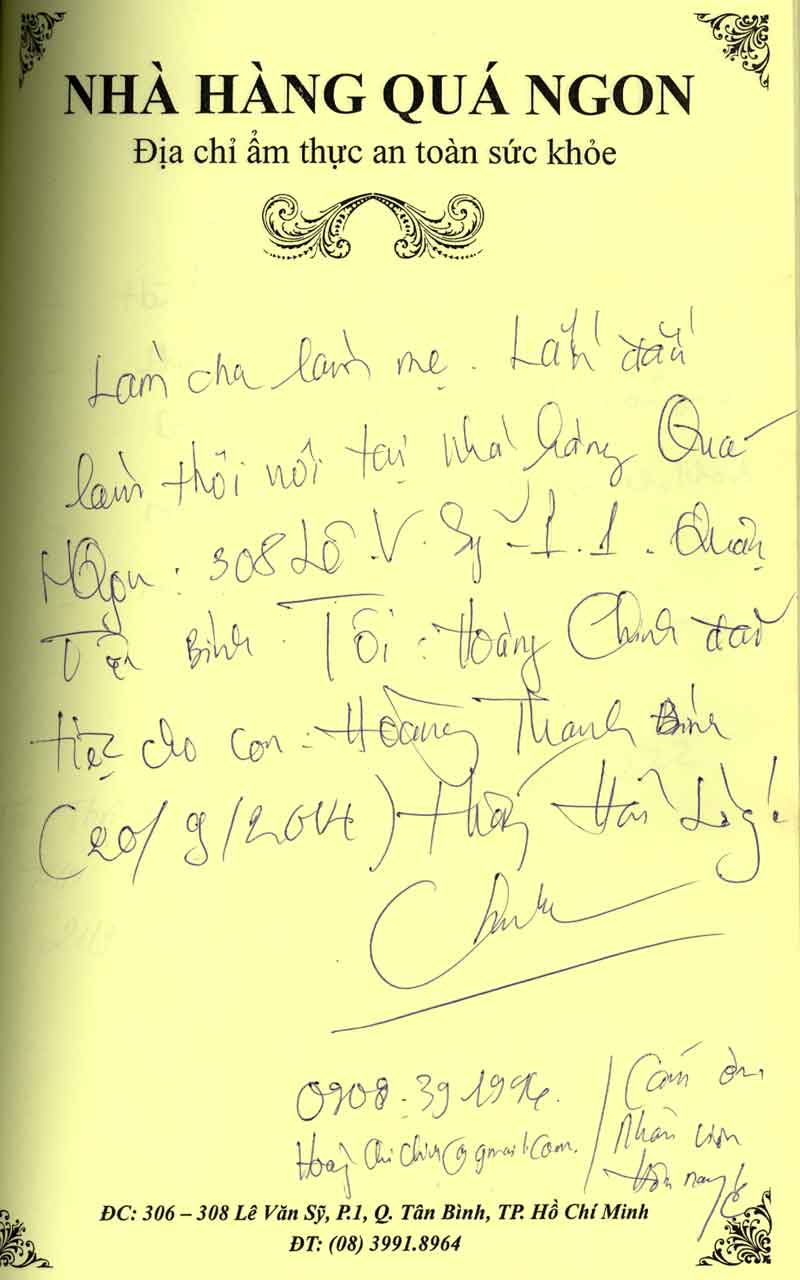 NHÀ HÀNG QUÁ NGON
Địa chỉ ẩm thực an toàn sức khỏe
Làm cha làm mẹ. Lần đầu
làm thôi nôi tại nhà hàng Quá
Ngon: 308 Lê V. Sỹ - P.1. Quận
Tân Bình. Tôi: Hoàng Chinh đãi
tiệc cho con: Hoàng Thanh Bình
(20/9/2014) thấy Hài Lòng!
Chinh
0908.39 1994. / Cám ơn
@gmail.com. / Nhân viên
hôm nay
ĐC: 306 – 308 Lê Văn Sỹ, P.1, Q. Tân Bình, TP. Hồ Chí Minh
ĐT: (08) 3991.8964